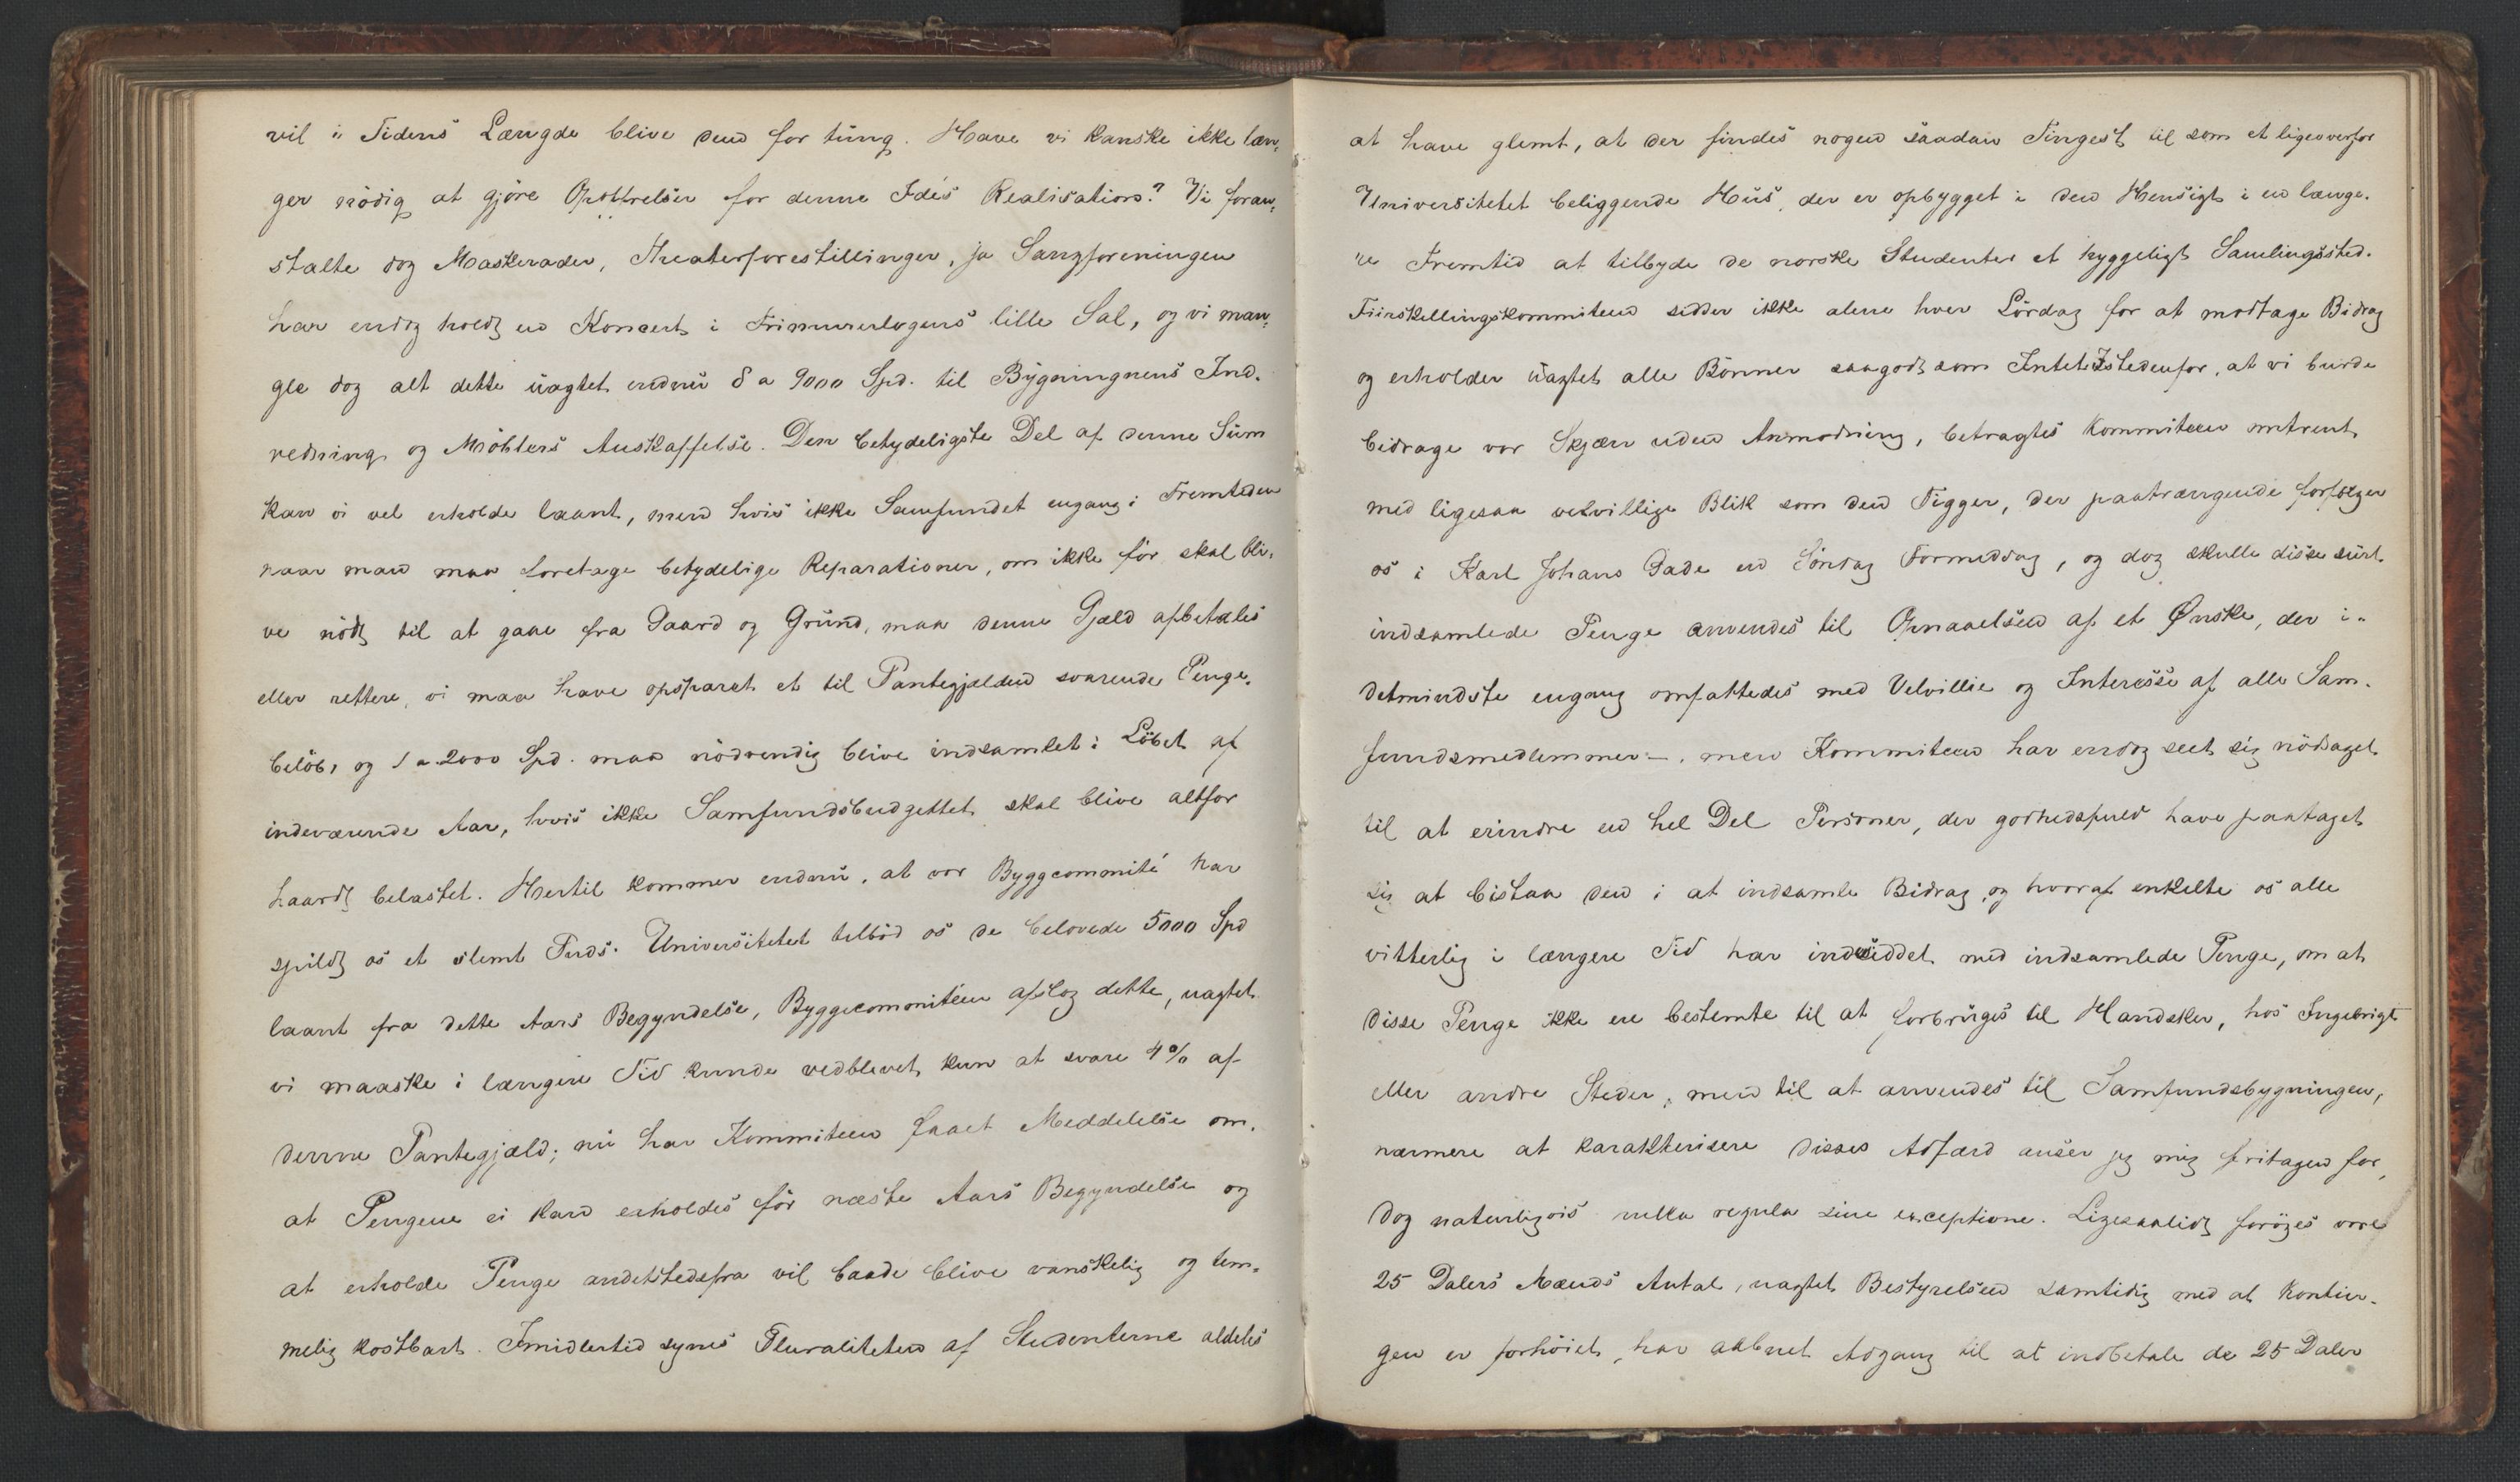 vil i Tidens Længde blive dem for tung. Have vi kanske ikke læn-
ger nödig at gjöre Opoffrelser for denne Idés Realisation? Vi foran-
stalte dog Maskerader, Theaterforestillinger, ja Sangforeningen
har endog holdt en Koncert i Frimurerlogens lille Sal, og vi man-
gle dog alt dette uagtet endnu 8 a 9000 Spd. til Bygningnens Ind-
redning og Möblers Anskaffelse. Den betydeligste Del af denne Sum
kan vi vel erholde laant, men hvis ikke Samfundet engang i Fremtiden
naar man maa foretage betydelige Reparationer, om ikke för skal bli-
ve nödt til at gaae fra Gaard og Grund, maa denne Gjæld afbetales
eller rettere, vi maa have opsparet et til Pantegjælden svarende Penge-
belöb, og 1 a 2000 Spd. maa nödvendig blive indsamlet i Löbet af
indeværende Aar, hvis ikke Samfundsbudgettet skal blive altfor
haardt belastet. Hertil kommer endnu, at vor Byggcommité har
spildt os et slemt Puds. Universitetet tilböd os de belovede 5000 Spd
laant fra dette Aars Begyndelse, Byggecommitéen afslog dette, uagtet
vi maaske i længere Tid kunde vedblevet kun at svare 4% af
denne Pantegjæld; nu har Kommiteen faaet Meddelelse om,
at Pengene ei kan erholdes för næste Aars Begyndelse og
at erholde Penge andetstedsfra vil baade blive vanskelig og tem-
melig kostbart. Imidlertid synes Pluraliteten af Studenterne aldeles
at have glemt, at der findes nogen saadan Tingest til som et ligeoverfor
Universitetet beliggende Hus, der er opbygget i den Hensigt i en længe-
re Fremtid at tilbyde de norske Studenter et hyggeligt Samlingssted.
Fiirskillingskommiteen sidder ikke alene hver Lördag for at modtage Bidrag
og erholder uagtet alle Bönner saagodt som Intet Istedenfor, at vi burde
bidrage vor Skjærv uden Anmodning, betragtes Kommiteen omtrent
med ligesaa velvillige Blik som den Tigger, der paatrængende forfölger
os i Karl Johans Gade en Söndag Formiddag, og dog skulle disse surt
indsamlede Penge anvendes til Opnaaelsen af et Ønske, der i-
detmindste engang omfattedes med Velvillie og Interesse af alle Sam-
fundsmedlemmer –, men Kommiteen har endog seet sig nödsaget
til at erindre en hel Del Personer, der godhedsfuld have paataget
sig at bistaa den i at indsamle Bidrag, og hvoraf enkelte os alle
vitterlig i længere Tid har indesiddet med indsamlede Penge, om at
disse Penge ikke ere bestemte til at forbruges til Handsker, hos Ingebrigt
eller andre Steder, men til at anvendes til Samfundsbygningen,
nærmere at karakterisere disses Adfærd anser jeg mig fritagen for,
dog naturligvis nulla regula sine exceptione. Ligesaalidt foröges vore
25 Dalers Mænds Antal, uagtet Bestyrelsen samtidig med at Kontin-
gen er forhöiet, har aabnet Adgang til at indbetale de 25 Daler